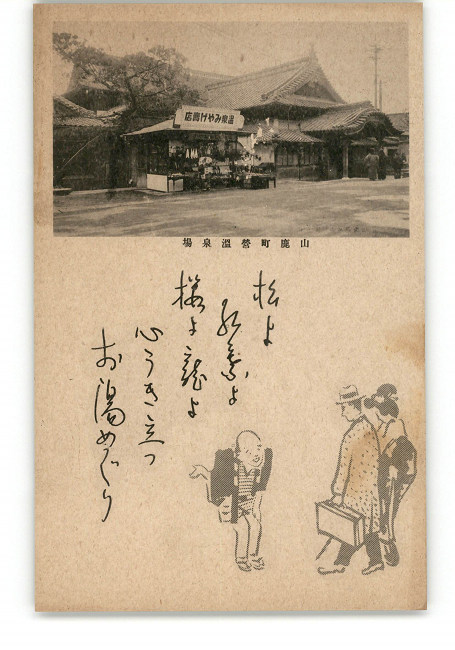 溫泉みやげ賣店
山鹿町營溫泉場
松よ
紅葉よ
櫻よ龍よ
心うき立つ
お湯めぐり